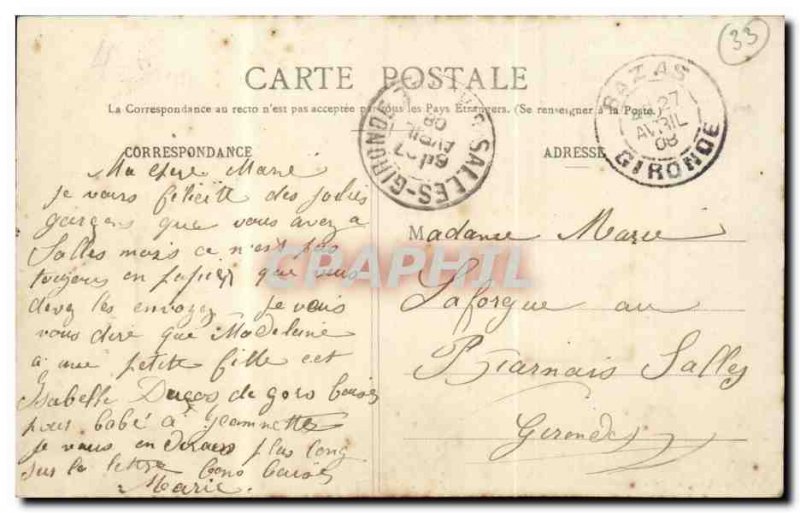 33
CARTE POSTALE
La Correspondance au recto n'est pas acceptée par tous les Pays Étrangers. (Se renseigner à la Poste.)
BAZAS
27
AVRIL
08
GIRONDE
SALLES-GIRONDE
27
AVRIL
08
CORRESPONDANCE
ADRESSE
Ma chere Marie
Je vous félicite des jolies
garçons que vous avez a
Salles mais ce n'est pas
toujours en papier que vous
devez les envoyez je vais
vous dire que Madeleine
a une petite fille cet
Isabelle Ducos de gros baises
pour bébé à Jeannette
je vous en dirais plus long
sur la lettre bons baises
Marie.
Madame Marie
Laforgue au
Salles
Gironde
CPAPHIL